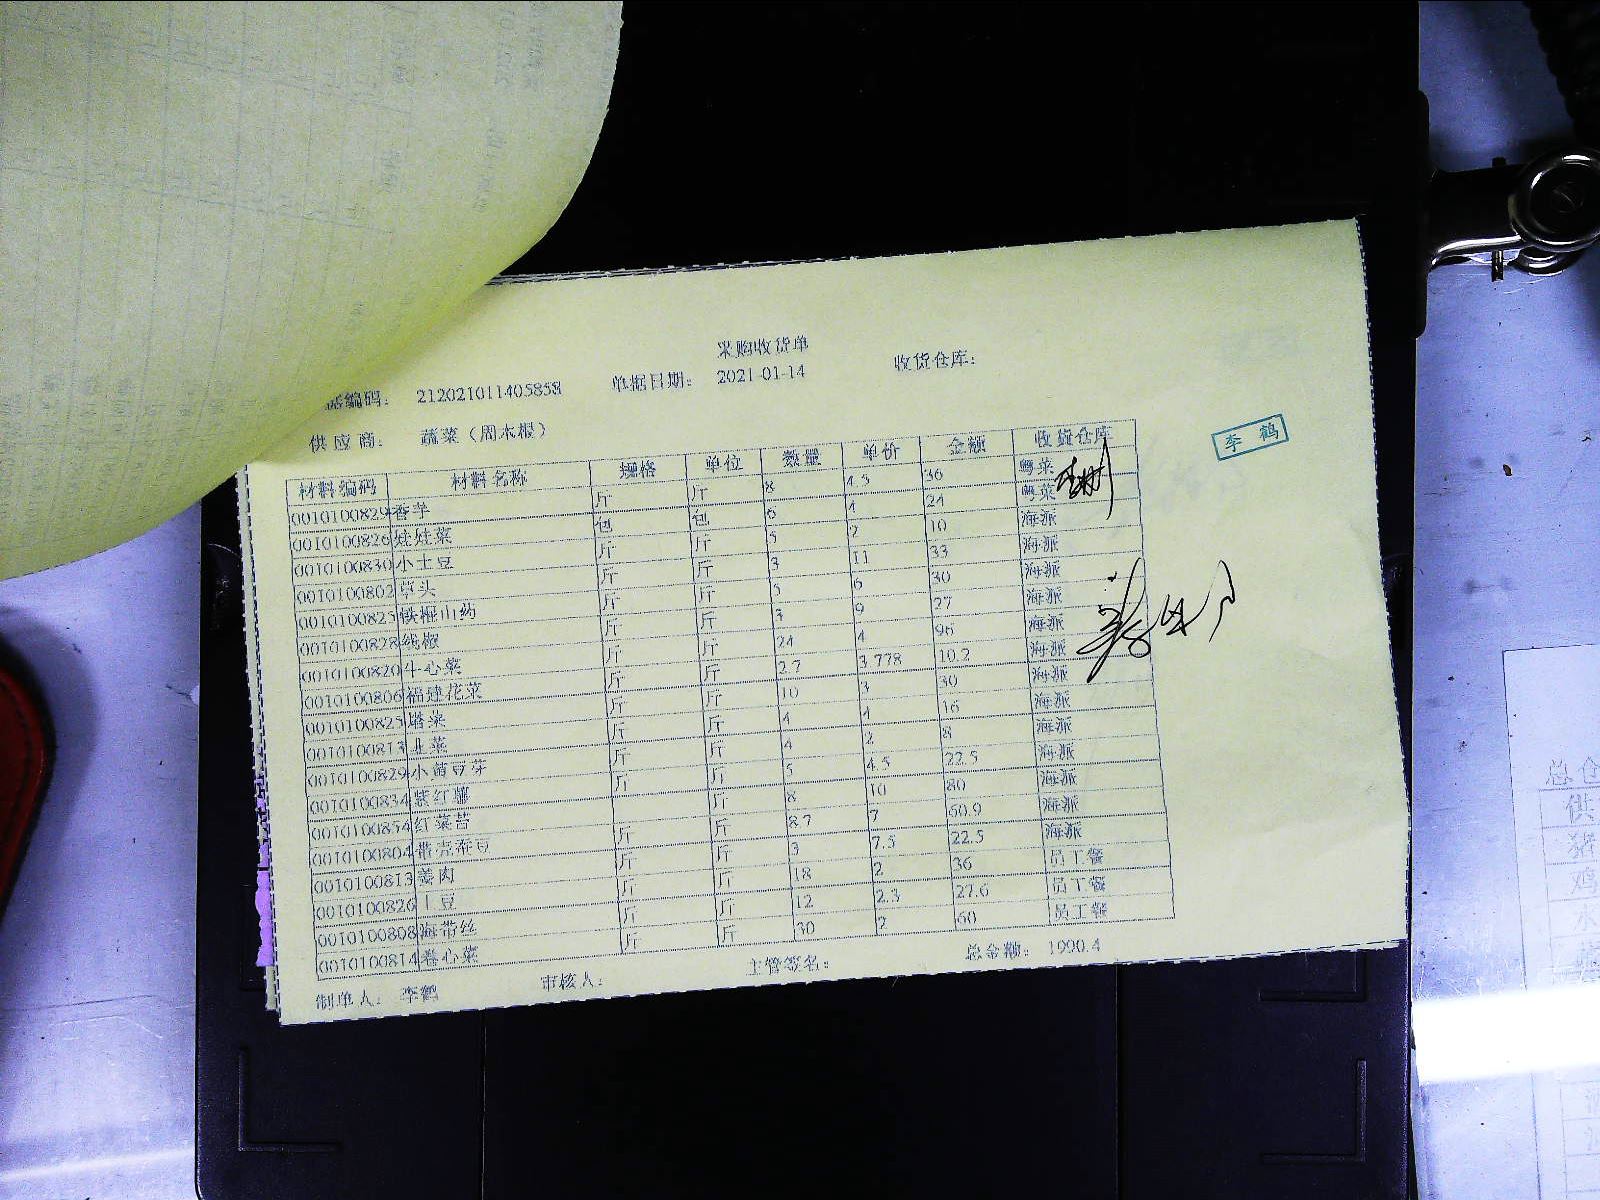 采购收货单
据编码: 212021011405858 单据日期: 2021-01-14 收货仓库:
供应商: 蔬菜（周木根）
李鹤
材料编码 材料名称 规格 单位 数量 单价 金额 收货仓库
0010100829 香芋 斤 斤 8 4.5 36 粤菜
0010100826 娃娃菜 包 包 6 4 24 粤菜
0010100830 小土豆 斤 斤 5 2 10 海派
0010100802 草头 斤 斤 3 11 33 海派
0010100825 铁棍山药 斤 斤 5 6 30 海派
0010100828 线椒 斤 斤 3 9 27 海派
0010100820 牛心菜 斤 斤 24 4 96 海派
0010100806 福建花菜 斤 斤 2.7 3.778 10.2 海派
0010100825 塔菜 斤 斤 10 3 30 海派
001010081 生菜 斤 斤 4 4 16 海派
0010100829 小黄豆芽 斤 斤 4 2 8 海派
0010100834 紫红薯 斤 斤 5 4.5 22.5 海派
0010100854 红菜苔 斤 8 10 80 海派
0010100804 带壳蚕豆 斤 斤 8.7 7 60.9 海派
0010100813 姜肉 斤 斤 3 7.5 22.5 海派
0010100826 土豆 斤 斤 18 2 36 员工餐
0010100808 海带丝 斤 斤 12 2.3 27.6 员工餐
0010100814 卷心菜 斤 斤 30 2 60 员工餐
制单人: 李鹤 审核人: 主管签名: 总金额: 1990.4
总仓
供
猪
鸡
水